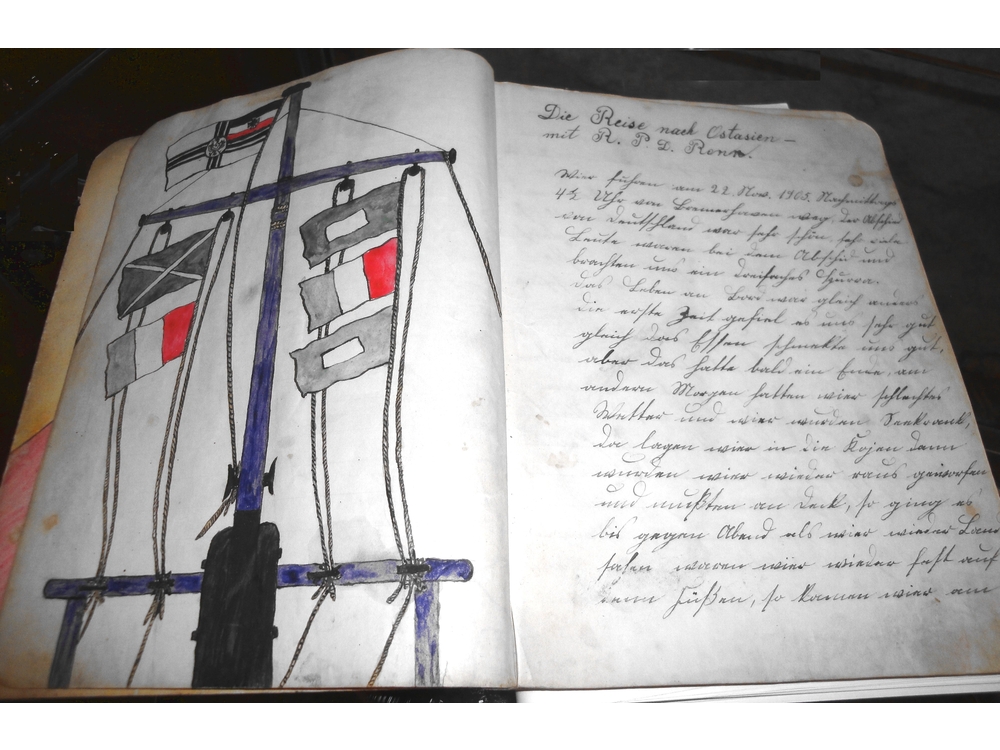 Die Reise nach Ostasien –
mit R. P. D. Ronn.
Wier führen am 22. Nov. 1905. Nachmittags
4½ Uhr von Bremerhaven weg, der Abschied
von Deutschland war sehr schön, sehr viele
Leute waren bei dem Abschied und
brachten uns ein dreifaches Hurra.
das Leben an Bord war gleich
die erste Zeit gefiel es uns sehr gut
gleich das Essen schmekte uns gut,
aber das hatte bald ein Ende, am
andern Morgen hatten wier schlechtes
Wetter und wier wurden Seekrank,
da lagen wier in die Kojen dann
wurden wier wieder raus geworfen
und mußten an Deck, so ging es
bis gegen Abend als wier wieder Land
sahen waren wier wieder fest auf
denn Füßen, so kamen wier am